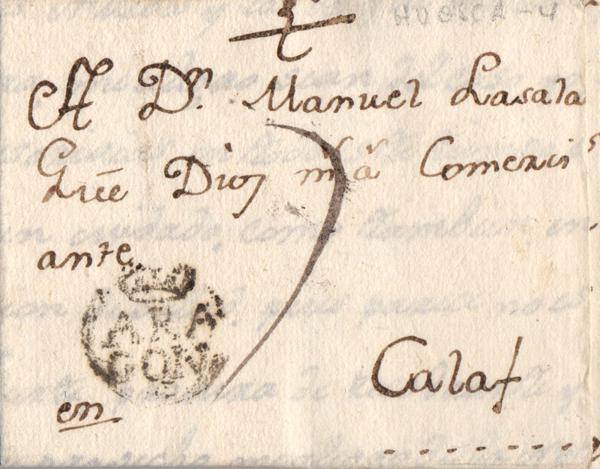 HUESCA-4
A Dn. Manuel Lasala
Gue Dios ms as Comercis
ante
ARA
GON
en Calaf